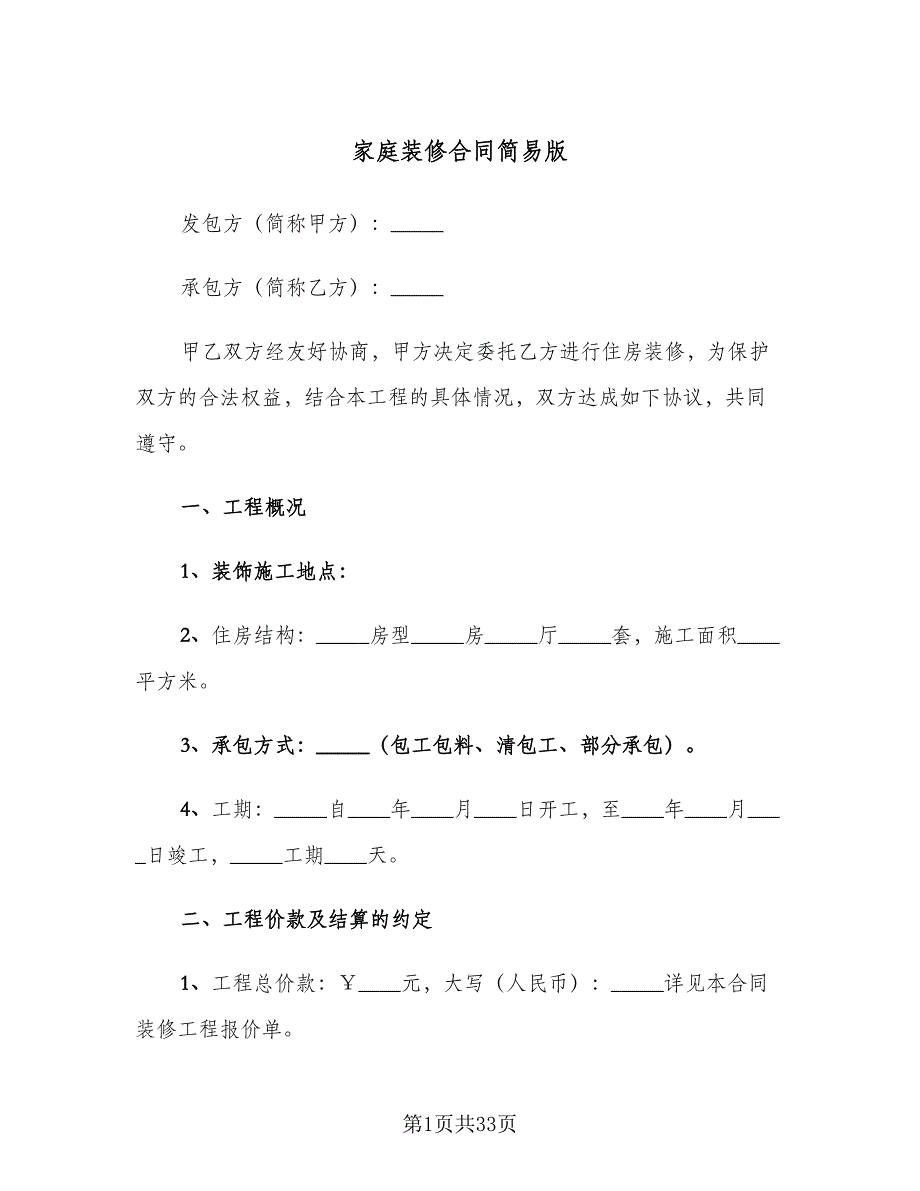 家庭装修合同简易版
发包方（简称甲方）：_____
承包方（简称乙方）：_____
甲乙双方经友好协商，甲方决定委托乙方进行住房装修，为保护
双方的合法权益，结合本工程的具体情况，双方达成如下协议，共同
遵守。
一、工程概况
1、装饰施工地点：
2、住房结构：_____房型_____房_____厅_____套，施工面积____
平方米。
3、承包方式：_____（包工包料、清包工、部分承包）。
4、工期：_____自____年____月____日开工，至____年____月___
_日竣工，_____工期____天。
二、工程价款及结算的约定
1、工程总价款：￥____元，大写（人民币）：_____详见本合同
装修工程报价单。
第1页共33页